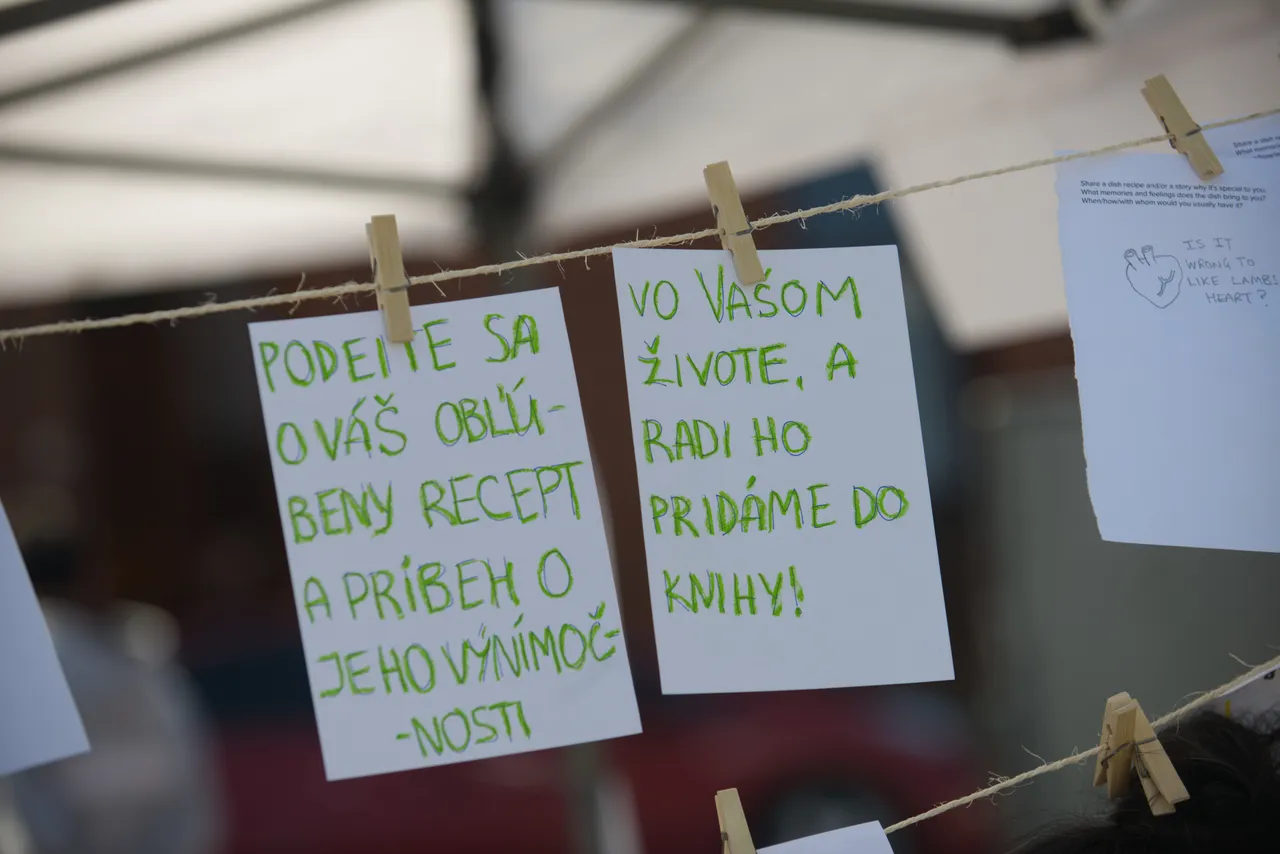 PODEJTE SA
O VÁŠ OBĽÚ-
BENY RECEPT
A PRÍBEH O
JEHO VÝNÍMOČ-
-NOSTI
VO VAŠOM
ŽIVOTE, A
RADI HO
PRIDÁME DO
KNIHY!
Share a dish recipe and/or a story why it's special to you?
What memories and feelings does the dish bring to you?
When/how/with whom would you usually have it?
IS IT
WRONG TO
LIKE LAMBS
HEART?
Share a dish
What memories